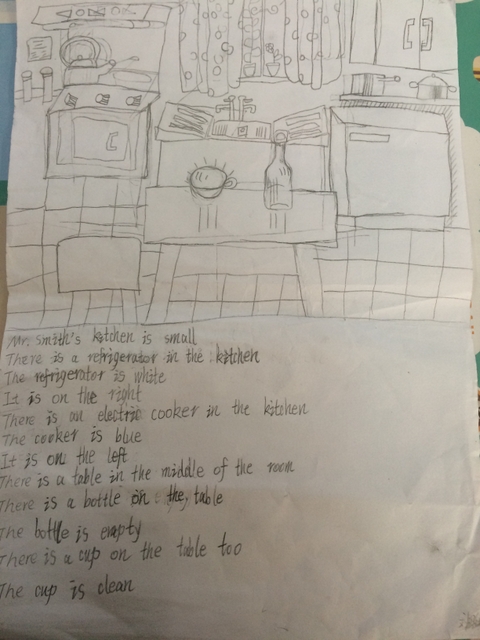 Mr. Smith's kitchen is small
There is a refrigerator in the kitchen
The refrigerator is white
It is on the right
There is an electric cooker in the kitchen
The cooker is blue
It is on the left
There is a table in the middle of the room
There is a bottle on the table
The bottle is empty
There is a cup on the table too
The cup is clean